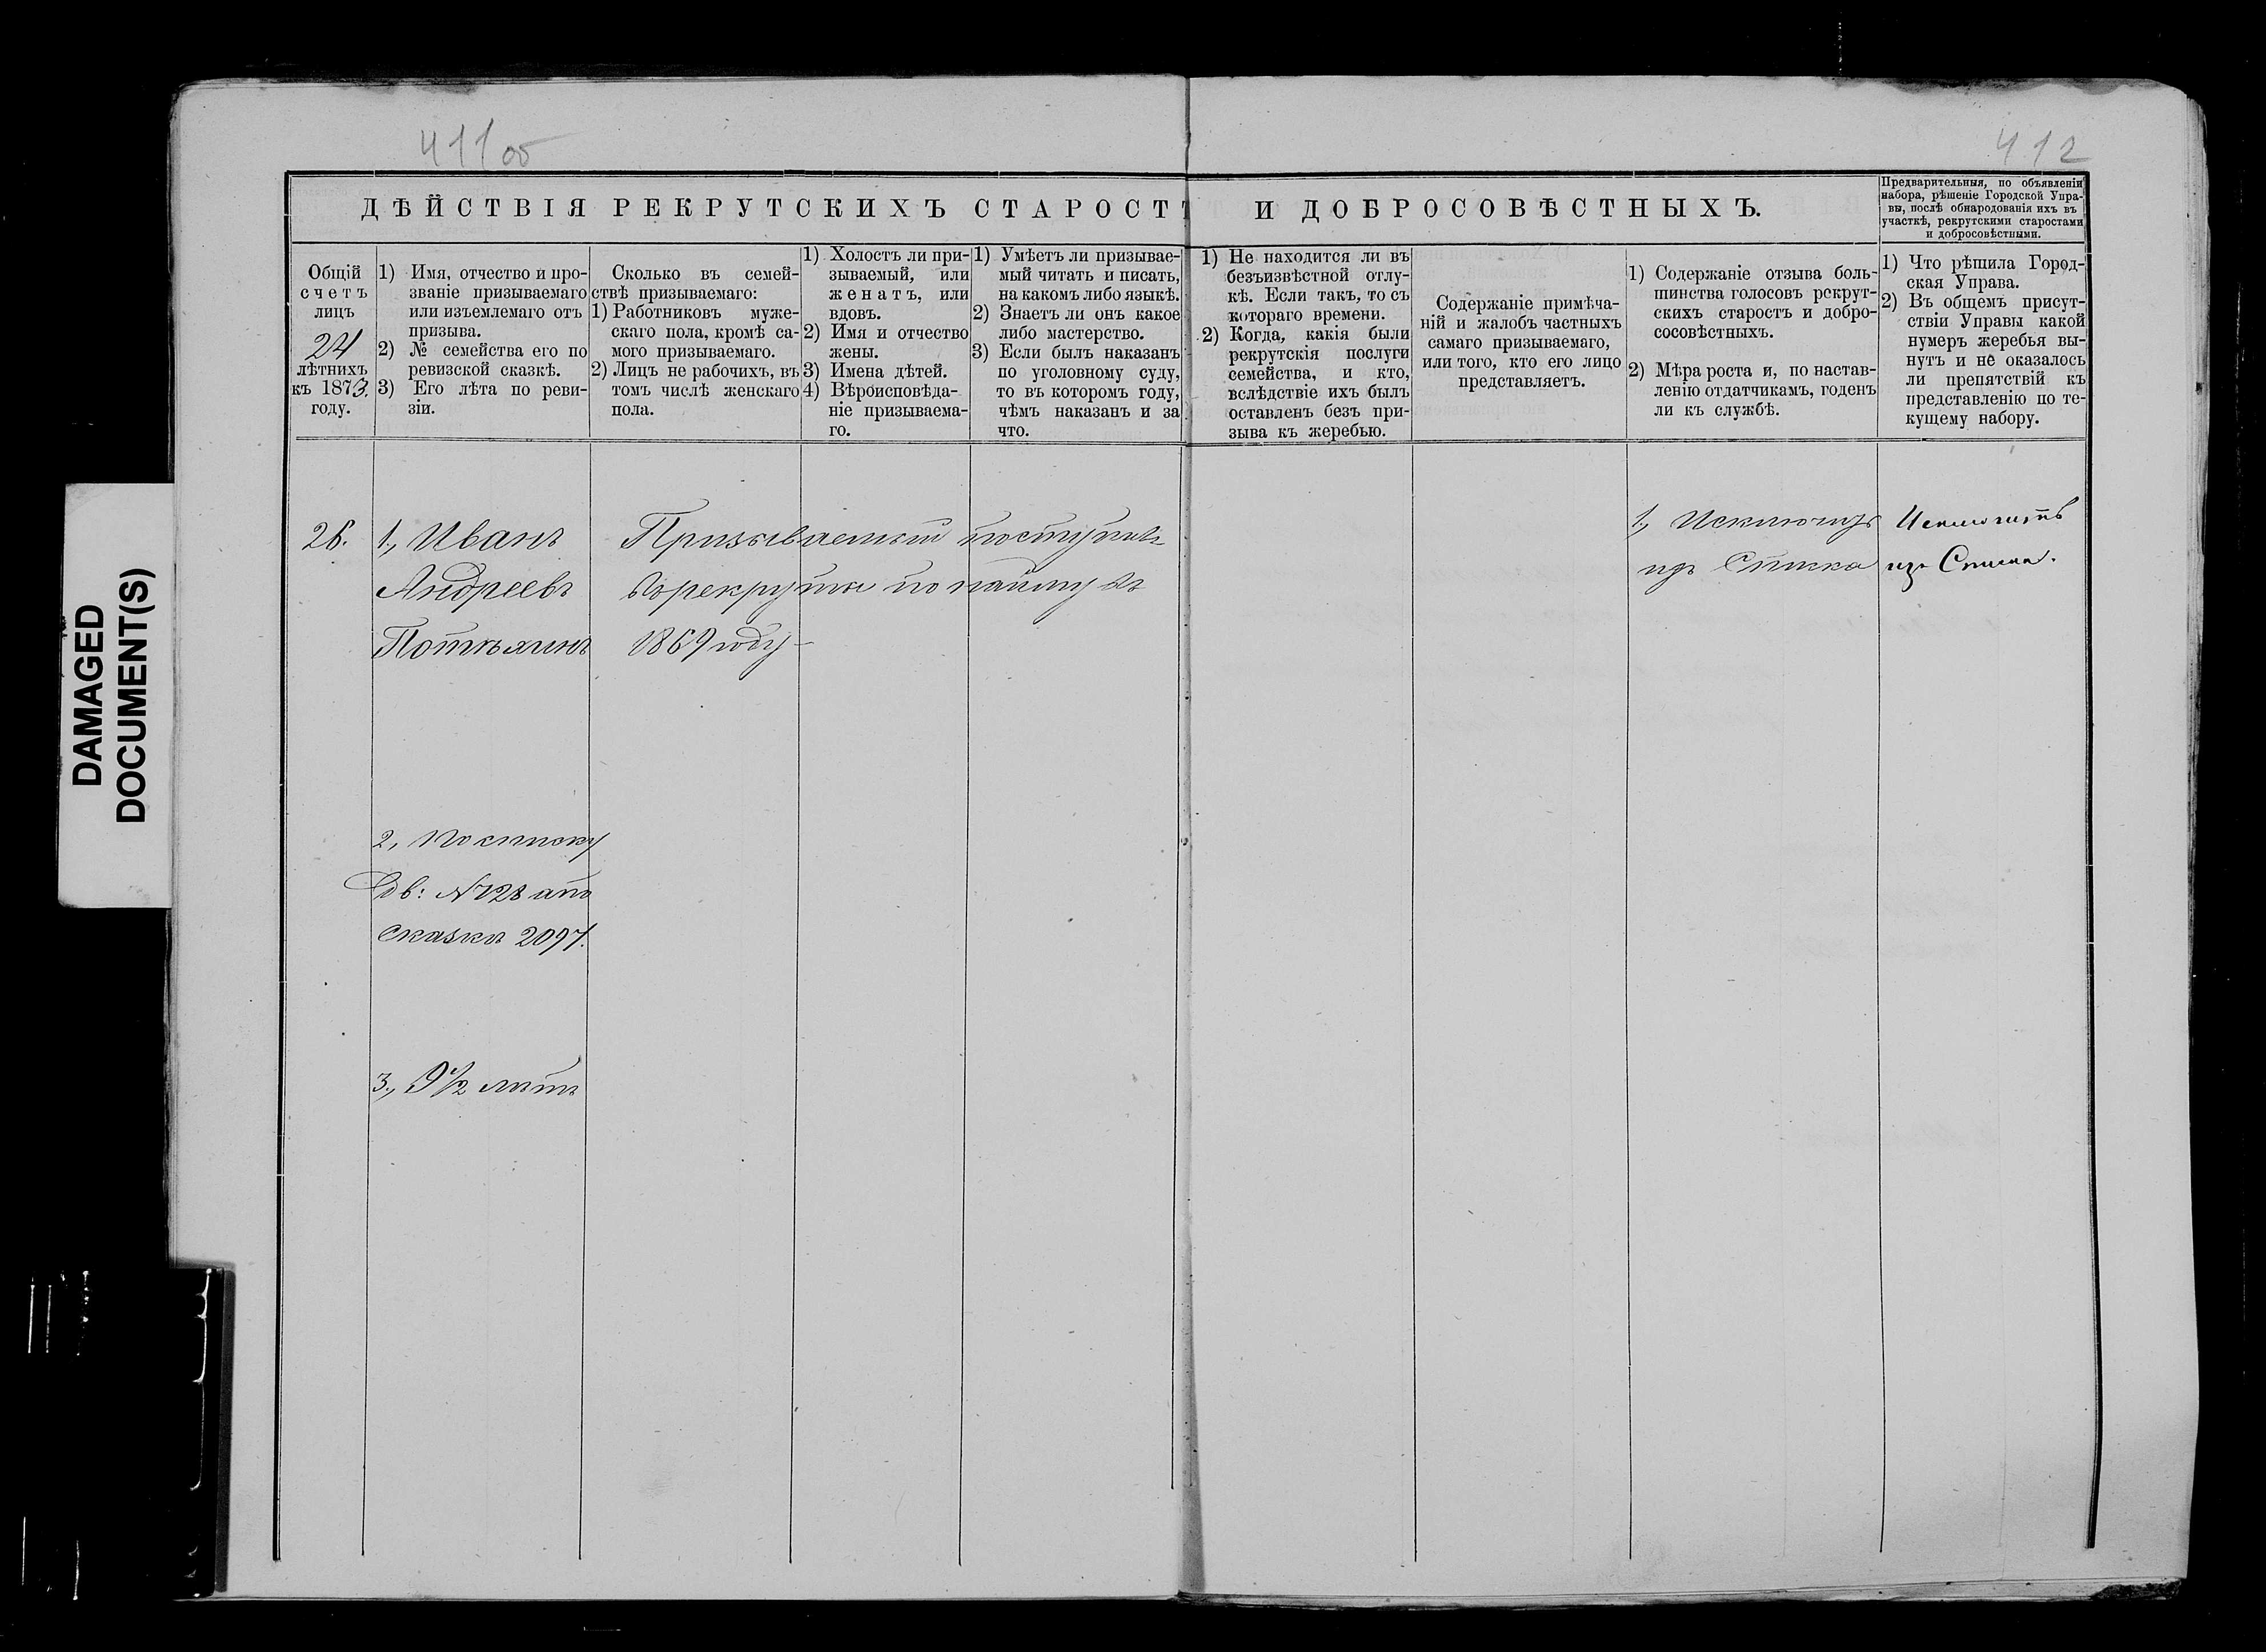 DAMAGED
DOCUMENT(S)
411 об
412
ДѢЙСТВІЯ РЕКРУТСКИХЪ СТАРОСТЪ И ДОБРОСОВѢСТНЫХЪ.
Предварительныя, по объявленіи
набора, рѣшеніе Городской Упра-
вы, послѣ обнародованія ихъ въ
участкѣ, рекрутскими старостами
и добросовѣстными.
Общій
счетъ
лицъ
24
лѣтнихъ
къ 1873.
году.
1) Имя, отчество и про-
званіе призываемаго
или изъемлемаго отъ
призыва.
2) № семейства его по
ревизской сказкѣ.
3) Его лѣта по реви-
зіи.
Сколько въ семей-
ствѣ призываемаго:
1) Работниковъ муже-
скаго пола, кромѣ са-
мого призываемаго.
2) Лицъ не рабочихъ, въ
томъ числѣ женскаго
пола.
1) Холостъ ли при-
зываемый, или
женатъ, или
вдовъ.
2) Имя и отчество
жены.
3) Имена дѣтей.
4) Вѣроисповѣда-
ніе призываема-
го.
1) Умѣетъ ли призывае-
мый читать и писать,
на какомъ либо языкѣ.
2) Знаетъ ли онъ какое
либо мастерство.
3) Если былъ наказанъ
по уголовному суду,
то въ которомъ году,
чѣмъ наказанъ и за
что.
1) Не находится ли въ
безъизвѣстной отлу-
кѣ. Если такъ, то съ
котораго времени.
2) Когда, какія были
рекрутскія послуги
семейства, и кто,
вслѣдствіе ихъ былъ
оставленъ безъ при-
зыва къ жеребью.
Содержаніе примѣча-
ній и жалобъ частныхъ
самаго призываемаго,
или того, кто его лицо
представляетъ.
1) Содержаніе отзыва боль-
шинства голосовъ рекрут-
скихъ старостъ и добро-
сосовѣстныхъ.
2) Мѣра роста и, по настав-
ленію отдатчикамъ, годенъ
ли къ службѣ.
1) Что рѣшила Город-
ская Управа.
2) Въ общемъ присут-
ствіи Управы какой
нумеръ жеребья вы-
нутъ и не оказалось
ли препятствій къ
представленію по те-
кущему набору.
26.
1., Иванъ
Андреевъ
Потѣхинъ
2, По списку
Дв: №128 апо
сказкѣ 2097.
3., 9½ лѣтъ
Призываемый поступилъ
въ рекруты по найму въ
1869 году –
1., Исключить
изъ Списка
Исключить
изъ Списка.